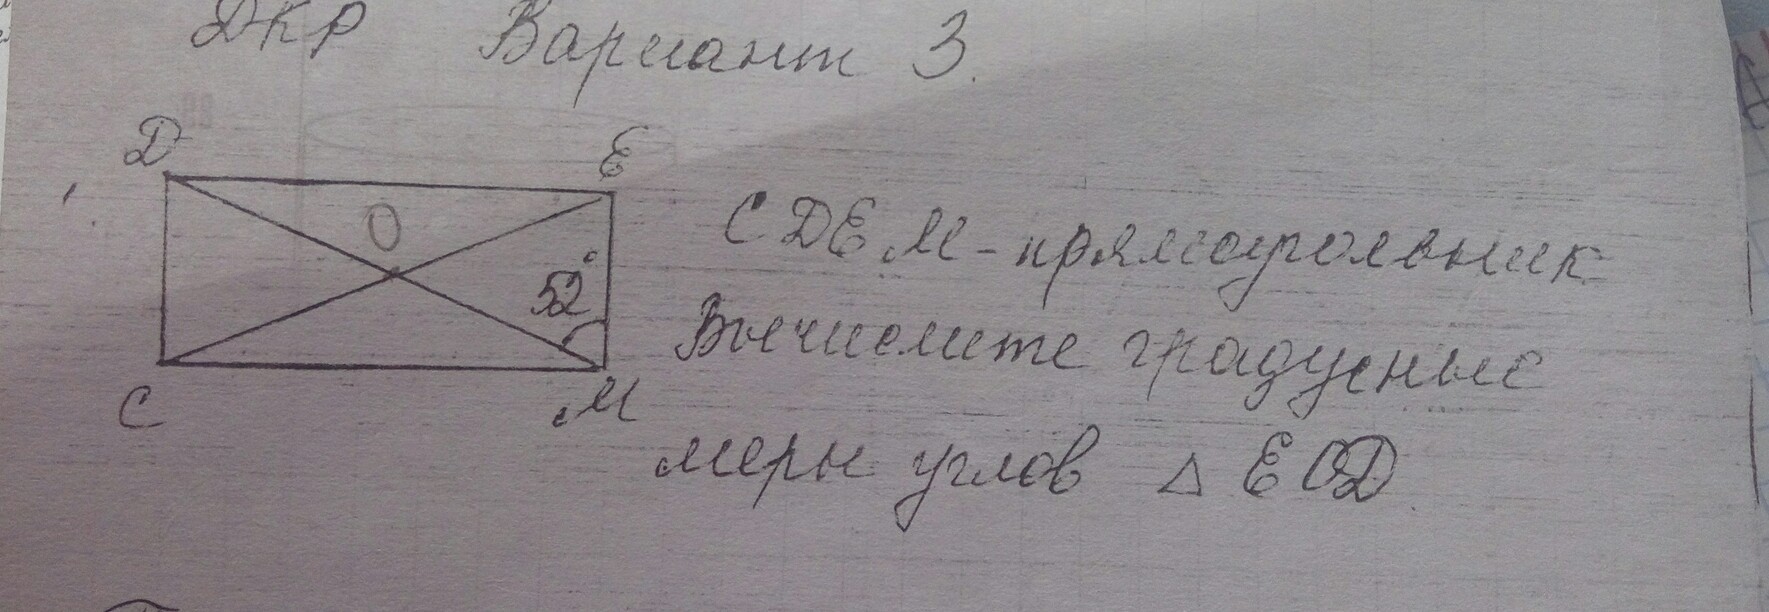 ДКР Вариант 3.
Д Е
О
52°
С М
СДЕМ - прямоугольник
Вычислите градусные
меры углов △ ЕОД